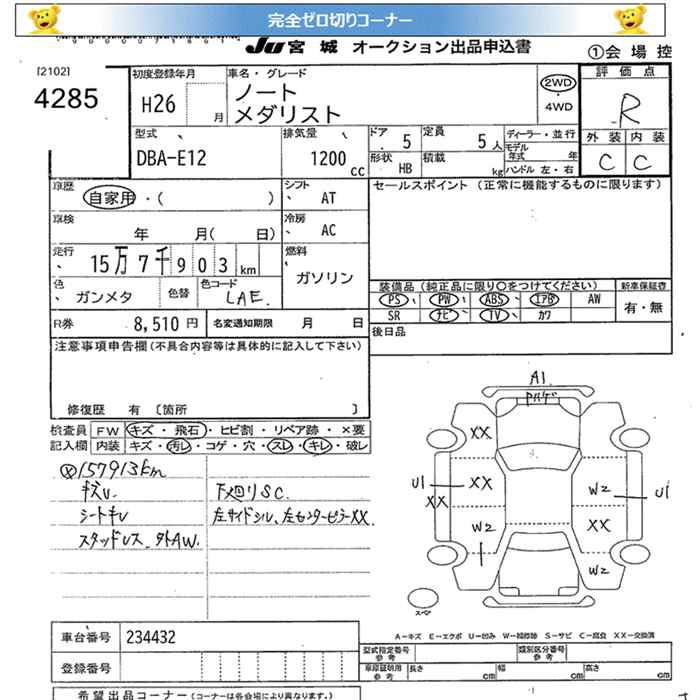 完全ゼロ切りコーナー
JU 宮城 オークション出品申込書 ①会場控
[2102]
4285
初度登録年月 H26 月
車名・グレード ノート
メダリスト
2WD
4WD
評価点
R
外装 内装
C C
型式 DBA-E12
排気量 1200 cc
ドア 5
定員 5人
形状 HB
積載 kg
ディーラー・並行
モデル年式 年
ハンドル 左・右
車歴 自家用・( )
シフト AT
セールスポイント (正常に機能するものに限ります)
車検 年 月( 日)
冷房 AC
走行 15万7千903km
燃料 ガソリン
色 ガンメタ
色替
色コード LAE.
装備品 (純正品に限り○をつけてください)
新車保証書
PS PW ABS エアB AW
有・無
SR ナビ TV カワ
R券 8,510円
名変通知期限 月 日
後日品
注意事項申告欄(不具合内容等は具体的に記入して下さい)
修復歴 有 〔箇所 〕
検査員
記入欄
FW キズ・飛石・ヒビ割・リペア跡・×要
内装 キズ・汚レ・コゲ・穴・スレ・キレ・破レ
157913km
キズU.
シートキレ
スタッドレス.外AW.
下廻りSC.
左サイドシル、左センターピラーXX.
A1
XX
U1
XX
XX
W2
W2
XX
W2
U1
スペア
A-キズ E-エクボ U-凹み W-補修跡 S-サビ C-腐食 XX-交換済
車台番号 234432
登録番号
型式指定番号
参考
類別区分番号
参考
車庫証明用
参考
長さ cm
幅 cm
高さ cm
希望出品コーナー (コーナーは各会場により異なります。)